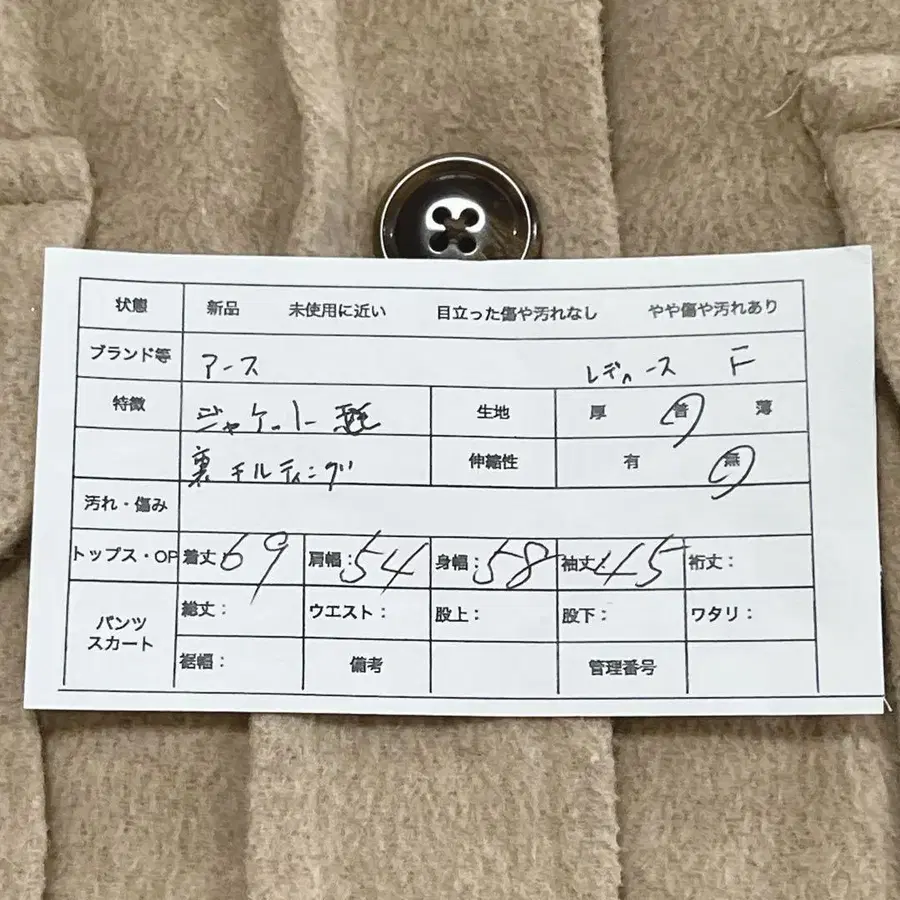 状態 新品 未使用に近い 目立った傷や汚れなし やや傷や汚れあり
ブランド等 アース レディース F
特徴 ジャケット 生地 厚 普 薄
裏キルティング 伸縮性 有 無
汚れ・傷み
トップス・OP 着丈:69 肩幅:54 身幅:58 袖丈:45 裄丈:
パンツ スカート 総丈: ウエスト: 股上: 股下: ワタリ:
裾幅: 備考 管理番号